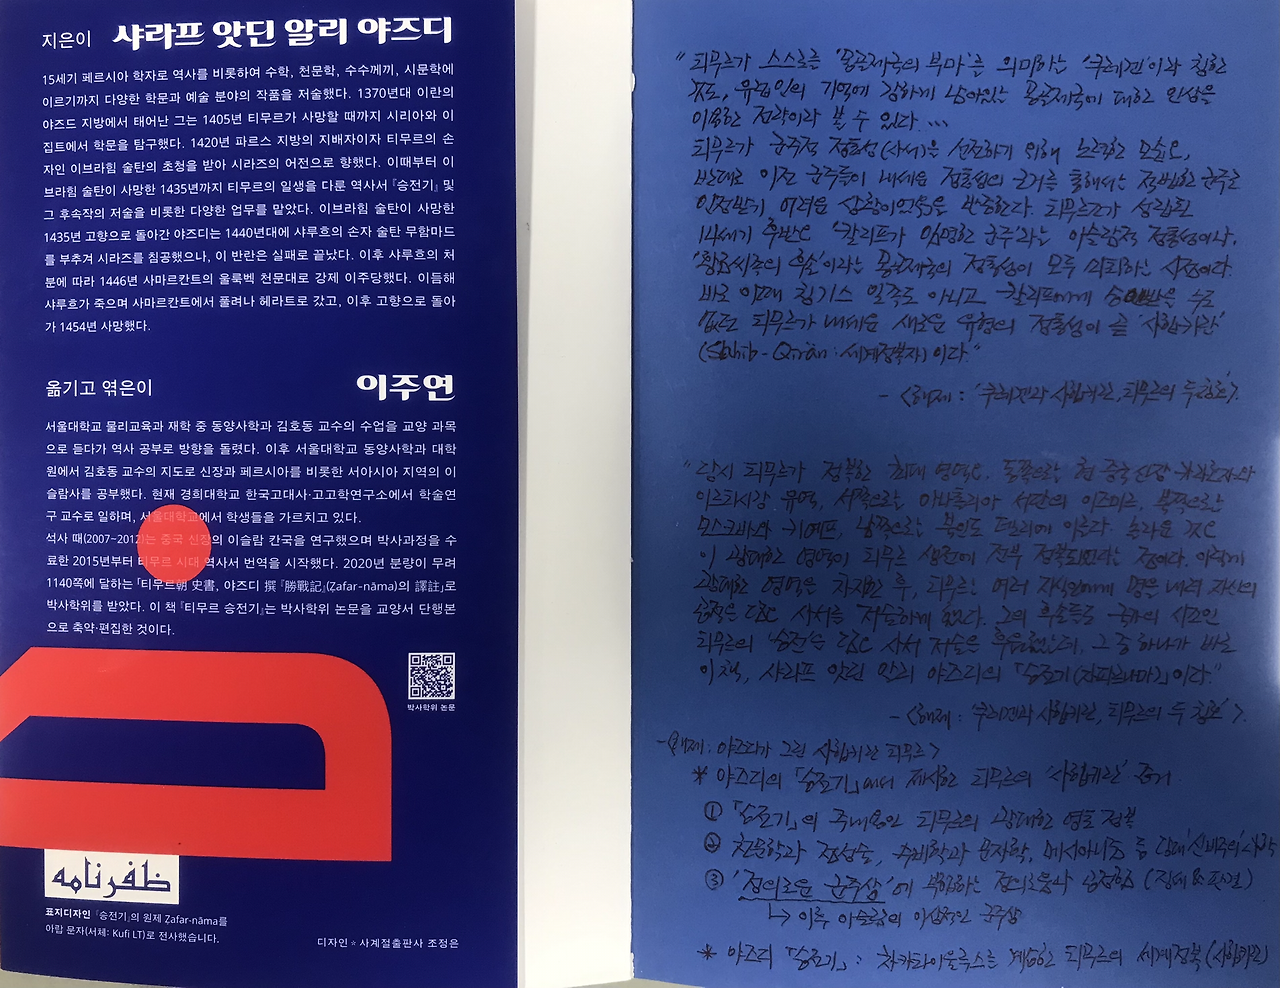 지은이 샤라프 앗딘 알리 야즈디
15세기 페르시아 학자로 역사를 비롯하여 수학, 천문학, 수수께끼, 시문학에
이르기까지 다양한 학문과 예술 분야의 작품을 저술했다. 1370년대 이란의
야즈드 지방에서 태어난 그는 1405년 티무르가 사망할 때까지 시리아와 이
집트에서 학문을 탐구했다. 1420년 파르스 지방의 지배자이자 티무르의 손
자인 이브라힘 술탄의 초청을 받아 시라즈의 어전으로 향했다. 이때부터 이
브라힘 술탄이 사망한 1435년까지 티무르의 일생을 다룬 역사서 『승전기』 및
그 후속작의 저술을 비롯한 다양한 업무를 맡았다. 이브라힘 술탄이 사망한
1435년 고향으로 돌아간 야즈디는 1440년대에 샤루흐의 손자 술탄 무함마드
를 부추겨 시라즈를 침공했으나, 이 반란은 실패로 끝났다. 이후 샤루흐의 처
분에 따라 1446년 사마르칸트의 울룩벡 천문대로 강제 이주당했다. 이듬해
샤루흐가 죽으며 사마르칸트에서 풀려나 헤라트로 갔고, 이후 고향으로 돌아
가 1454년 사망했다.
옮기고 엮은이 이주연
서울대학교 물리교육과 재학 중 동양사학과 김호동 교수의 수업을 교양 과목
으로 듣다가 역사 공부로 방향을 돌렸다. 이후 서울대학교 동양사학과 대학
원에서 김호동 교수의 지도로 신장과 페르시아를 비롯한 서아시아 지역의 이
슬람사를 공부했다. 현재 경희대학교 한국고대사·고고학연구소에서 학술연
구 교수로 일하며, 서울대학교에서 학생들을 가르치고 있다.
석사 때(2007~2012)는 중국 신장의 이슬람 칸국을 연구했으며 박사과정을 수
료한 2015년부터 티무르 시대 역사서 번역을 시작했다. 2020년 분량이 무려
1140쪽에 달하는 「티무르朝 史書, 야즈디 撰 『勝戰記』(Ẓafar-nāma)의 譯註」로
박사학위를 받았다. 이 책 『티무르 승전기』는 박사학위 논문을 교양서 단행본
으로 축약·편집한 것이다.
박사학위 논문
ظفرنامه
표지디자인 『승전기』의 원제 Ẓafar-nāma를
아랍 문자(서체: Kufi LT)로 전사했습니다.
디자인 ☆ 사계절출판사 조정은
"티무르가 스스로를 '몽골제국의 부마'를 의미하는 '쿠레겐'이라 칭한
것도, 유럽인의 기억에 강하게 남아있는 몽골제국에 대한 인상을
이용한 전략이라 볼 수 있다. …
티무르가 군주적 정통성(사서)을 선전하기 위해 노력한 모습은,
반대로 이전 군주들이 내세운 정통성의 근거를 통해서는 적법한 군주로
인정받기 어려운 상황이었음을 반증한다. 티무르조가 성립된
14세기 후반은 '칼리프가 임명한 군주'라는 이슬람적 정통성이나,
'황금씨족의 후손'이라는 몽골제국의 정통성이 모두 쇠퇴하는 시점이다.
바로 이때 칭기스 일족도 아니고 칼리프에게 승인받을 수도
없던 티무르가 내세운 새로운 유형의 정통성이 곧 '사힙키란'
(Sahib-Qiran: 세계정복자)이다."
- <해제: '쿠레겐과 사힙키란, 티무르의 두 칭호'>.
"당시 티무르가 정복한 최대 영역은, 동쪽으로는 현 중국 신장
이르티시강 유역, 서쪽으로는 아나톨리아 서단의 이즈미르, 북쪽으로는
모스크바와 키예프, 남쪽으로는 북인도 델리에 이른다. 놀라운 것은
이 광대한 영역이 티무르 생전에 전부 정복되었다는 점이다. 이렇게
광대한 영역을 차지한 후, 티무르는 여러 지식인에게 명을 내려 자신의
업적을 담은 사서를 저술하게 했다. 그의 후손들도 국가의 시조인
티무르의 승전을 담은 사서 저술을 후원했는데, 그 중 하나가 바로
이 책, 샤라프 앗딘 알리 야즈디의 『승전기(자파르나마)』이다."
- <해제: '쿠레겐과 사힙키란, 티무르의 두 칭호'>.
- <해제: 야즈디가 그린 사힙키란 티무르>
* 야즈디의 『승전기』에서 제시한 티무르의 '사힙키란' 증거
① 『승전기』의 주내용인 티무르의 광대한 영토 정복
② 천문학과 점성술, 수비학과 문자학, 메시아니즘 등 당대 '신비주의'
③ '정의로운 군주상'에 부합하는 정의로움과 공정함
↳ 이후 이슬람의 이상적인 군주상
* 야즈디 『승전기』: 차가타이울루스를 계승한 티무르의 세계정복(사힙키란)